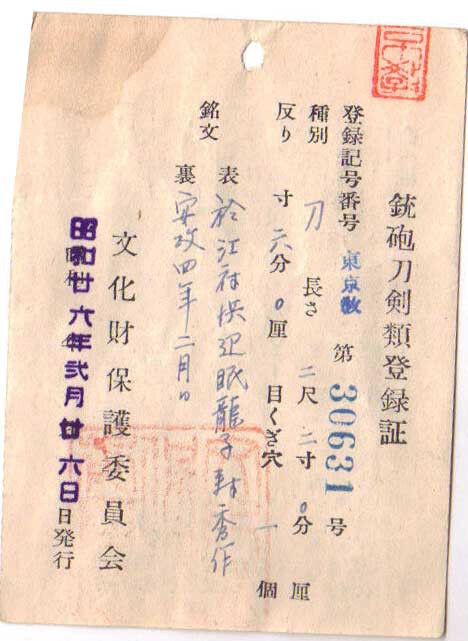 銃砲刀剣類登録証
登録記号番号 東京教 第 30631 号
種別 刀 長さ 二尺 二寸 〇分 厘
反り 寸 六分 〇厘 目くぎ穴 一 個
銘文 表 於江府 眠龍子 秀作
裏 安政四年二月日
文化財保護委員会
昭和廿六年弐月廿六日 日発行